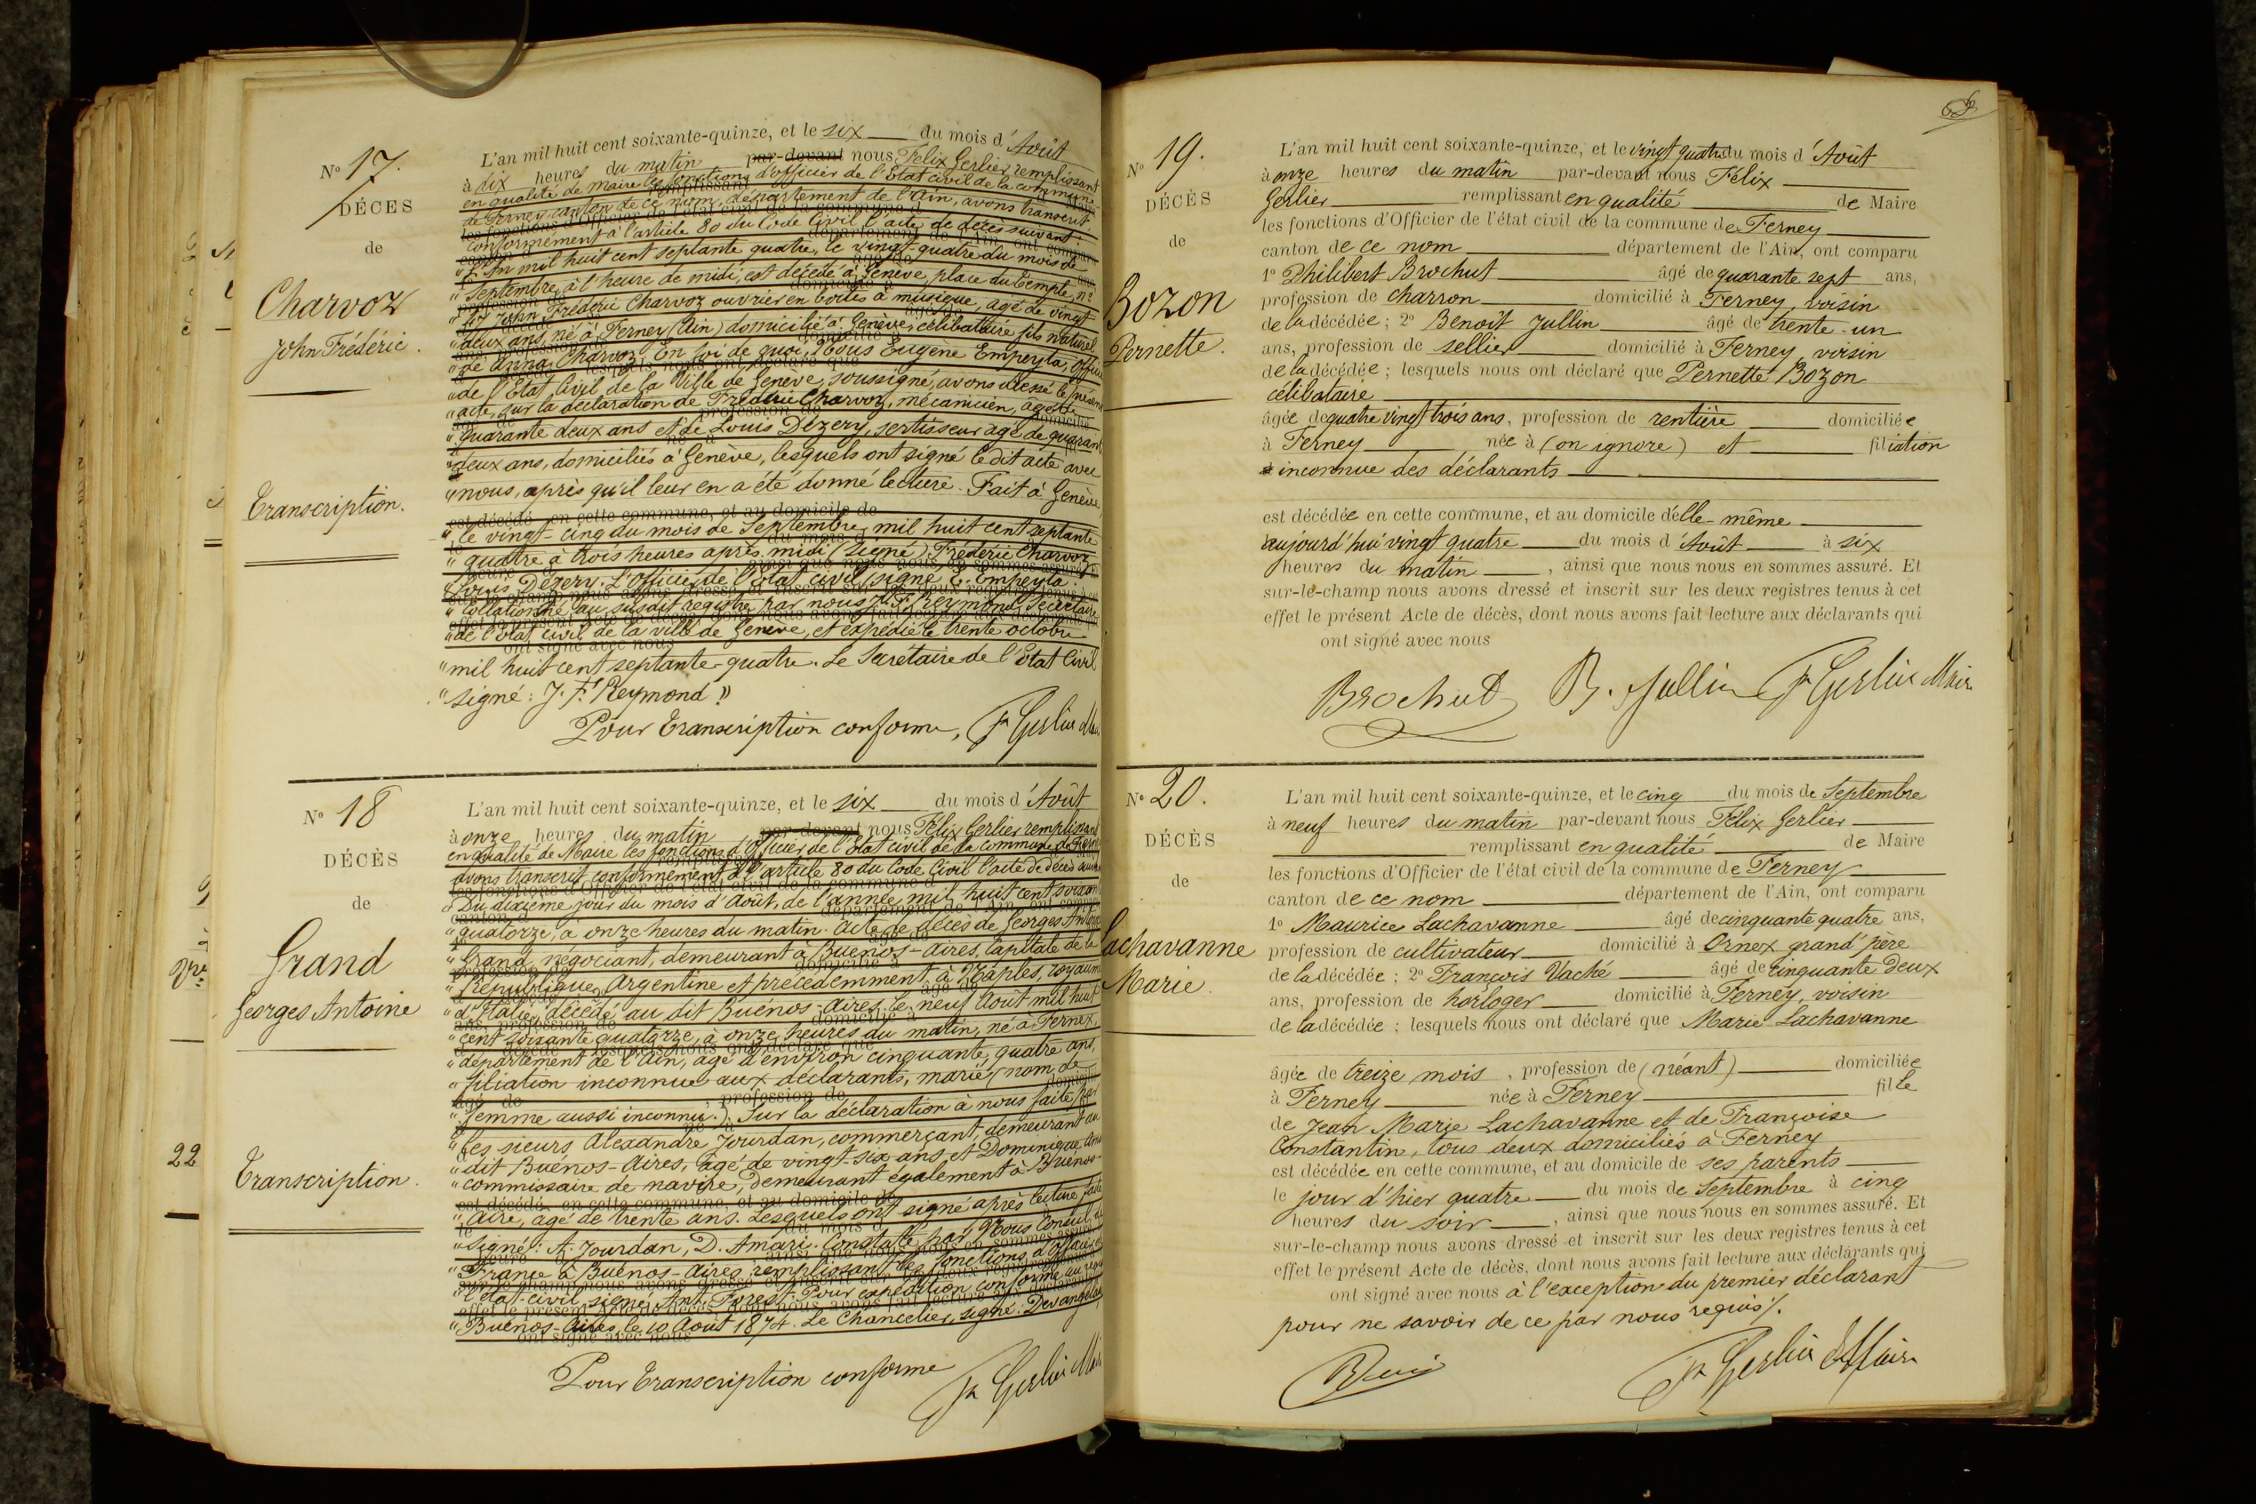 N° 17.
DÉCES
de
Charvoz
John Frédéric.
Transcription.
L'an mil huit cent soixante-quinze, et le six du mois d'Août
à dix heures du matin par-devant nous Félix Gerlier, remplissant
en qualité de maire les fonctions d'officier de l'Etat civil de la commune
de Ferney canton de ce nom, département de l'Ain, avons transcrit
conformément à l'article 80 du Code Civil l'acte de décès suivant:
"L'An mil huit cent septante quatre, le vingt-quatre du mois de
"Septembre, à l'heure de midi, est décédé à Genève, place du Temple, n°
John Frédéric Charvoz ouvrier en boîtes à musique, âgé de vingt
"deux ans, né à Ferney (Ain) domicilié à Genève, célibataire fils naturel
"de Anna Charvoz. En foi de quoi, Nous Eugène Empeyta, Officier
"de l'Etat Civil de la Ville de Genève, soussigné, avons dressé le présent
"acte, sur la déclaration de Frédéric Charvoz, mécanicien, âgé de
"quarante deux ans et de Louis Dézery, sertisseur âgé de quarante
"deux ans, domiciliés à Genève, lesquels ont signé le dit acte avec
"nous, après qu'il leur en a été donné lecture. Fait à Genève
est décédé en cette commune, et au domicile de
"le vingt-cinq du mois de Septembre mil huit cent septante
"quatre à trois heures après midi (signé) Frédéric Charvoz
"Louis Dézery. L'officier de l'Etat civil signé E. Empeyta.
"Collationné au susdit registre par nous J. F. Reymond, Secrétaire
"de l'Etat civil de la ville de Genève, et expédié le trente octobre
ont signé avec nous
"mil huit cent septante-quatre. Le Secrétaire de l'Etat Civil
"signé: J. F. Reymond"
Pour transcription conforme, Fx Gerlier Maire
N° 18
DÉCÈS
de
Grand
Georges Antoine
Transcription.
22
L'an mil huit cent soixante-quinze, et le six du mois d'Août
à onze heures du matin par-devant nous Félix Gerlier remplissant
en qualité de Maire les fonctions d'officier de l'Etat civil de la commune de Ferney
avons transcrit conformément à l'article 80 du Code Civil l'acte de décès suivant
"Du dixième jour du mois d'Août, de l'année mil huit cent soixante
"quatorze, à onze heures du matin. Acte de décès de Georges Antoine
"Grand, négociant, demeurant à Buénos-Aires, Capitale de la
"République Argentine et précédemment à Naples, royaume
"d'Italie, décédé au dit Buénos-Aires, le neuf Août mil huit
"cent soixante quatorze, à onze heures du matin, né à Fernex,
"département de l'Ain, âgé d'environ cinquante, quatre ans,
"filiation inconnue aux déclarants, marié (nom de
âgé de profession de domicilié
"femme aussi inconnu). Sur la déclaration à nous faite par
"les sieurs Alexandre Jourdan, commerçant, demeurant au
"dit Buénos-Aires, âgé de vingt-six ans et Dominique Amari
"commissaire de navire, demeurant également à Buénos-
est décédé en cette commune, et au domicile de
"Aire, âgé de trente ans. Lesquels ont signé après lecture faite
"signé: A. Jourdan, D. Amari. Constaté par Nous Consul de
"France à Buénos-Aires remplissant les fonctions d'officier de
"l'état-civil, signé Ant. Forest. Pour expédition conforme au registre
"Buénos-Aires, le 10 Août 1874. Le Chancelier, signé:
ont signé avec nous
Pour transcription conforme Fx Gerlier Maire
N° 19.
DÉCÈS
de
Bozon
Pernette.
L'an mil huit cent soixante-quinze, et le vingt quatre du mois d'Août
à onze heures du matin par-devant nous Félix
Gerlier remplissant en qualité de Maire
les fonctions d'Officier de l'état civil de la commune de Ferney
canton de ce nom département de l'Ain, ont comparu
1° Philibert Brochut âgé de quarante sept ans,
profession de charron domicilié à Ferney, voisin
de la décédée; 2° Benoît Jullin âgé de trente-un
ans, profession de sellier domicilié à Ferney, voisin
de la décédée; lesquels nous ont déclaré que Pernette Bozon
célibataire
âgée de quatre vingt trois ans, profession de rentière domiciliée
à Ferney née à (on ignore) et filiation
inconnue des déclarants
est décédée en cette commune, et au domicile d'elle-même
aujourd'hui vingt quatre du mois d'Août à six
heures du matin, ainsi que nous nous en sommes assuré. Et
sur-le-champ nous avons dressé et inscrit sur les deux registres tenus à cet
effet le présent Acte de décès, dont nous avons fait lecture aux déclarants qui
ont signé avec nous
Brochut B. Jullin Fx Gerlier Maire
N° 20.
DÉCÈS
de
Lachavanne
Marie.
L'an mil huit cent soixante-quinze, et le cinq du mois de Septembre
à neuf heures du matin par-devant nous Félix Gerlier
remplissant en qualité de Maire
les fonctions d'Officier de l'état civil de la commune de Ferney
canton de ce nom département de l'Ain, ont comparu
1° Maurice Lachavanne âgé de cinquante quatre ans,
profession de cultivateur domicilié à Ornex grand'père
de la décédée; 2° François Vaché âgé de cinquante deux
ans, profession de horloger domicilié à Ferney, voisin
de la décédée; lesquels nous ont déclaré que Marie Lachavanne
âgée de treize mois, profession de (néant) domiciliée
à Ferney née à Ferney fille
de Jean Marie Lachavanne et de Françoise
Constantin, tous deux domiciliés à Ferney
est décédée en cette commune, et au domicile de ses parents
le jour d'hier quatre du mois de Septembre à cinq
heures du soir, ainsi que nous nous en sommes assuré. Et
sur-le-champ nous avons dressé et inscrit sur les deux registres tenus à cet
effet le présent Acte de décès, dont nous avons fait lecture aux déclarants qui
ont signé avec nous à l'exception du premier déclarant
pour ne savoir de ce par nous requis/.
Fx Gerlier Maire